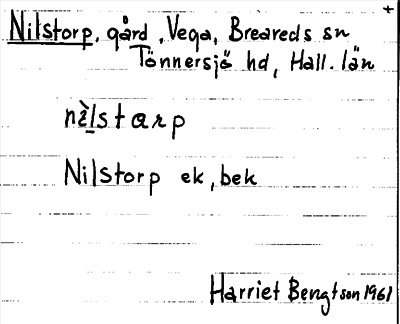 Nilstorp, gård, Vega, Breareds sn
Tönnersjö hd, Hall. län
nı̀lstarp
Nilstorp ek, bek
Harriet Bengtson 1961